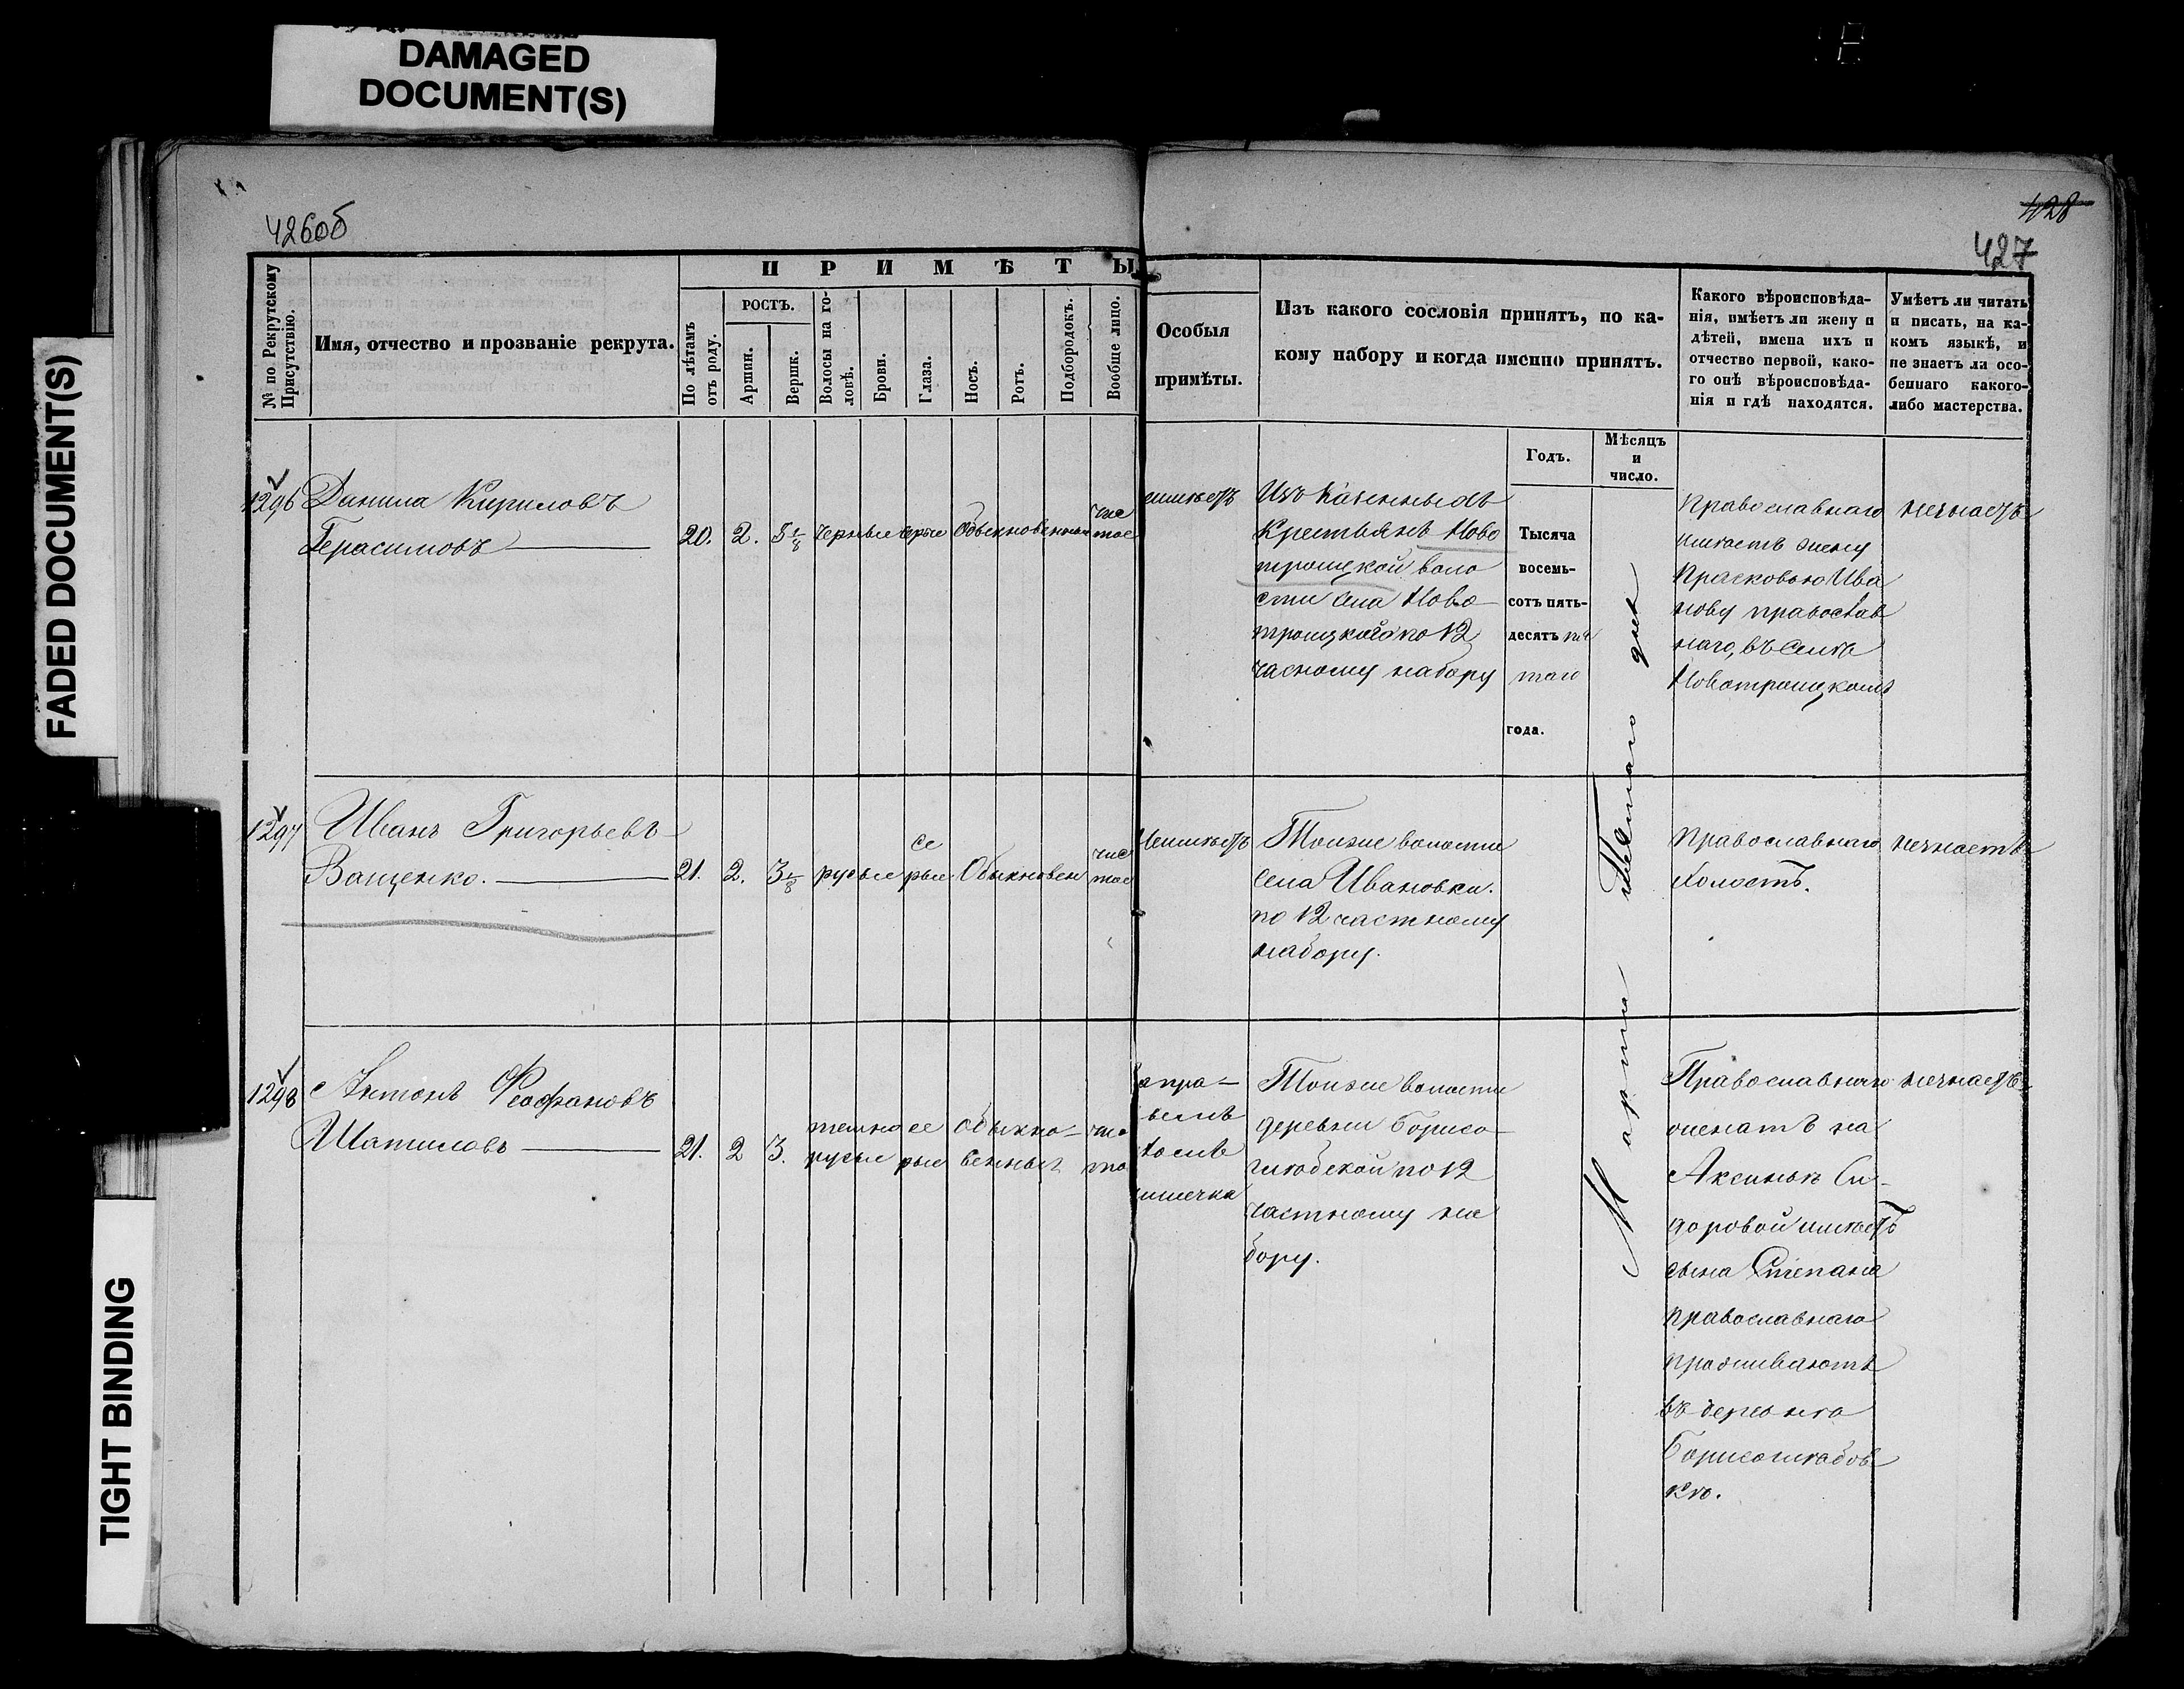 DAMAGED
DOCUMENT(S)
FADED DOCUMENT(S)
TIGHT BINDING
426об
428
427
№ по Рекрутскому
Присутствію.
Имя, отчество и прозваніе рекрута.
ПРИМѢТЫ
По лѣтамъ
отъ роду.
РОСТЪ.
Аршин.
Вершк.
Волосы на го-
ловѣ.
Брови.
Глаза.
Носъ.
Ротъ.
Подбородокъ.
Вообще лицо.
Особыя
примѣты.
Изъ какого сословія принятъ, по ка-
кому набору и когда именно принятъ.
Годъ.
Мѣсяцъ
и
число.
Какого вѣроисповѣда-
нія, имѣетъ ли жену и
дѣтей, имена ихъ и
отчество первой, како-
го онѣ вѣроисповѣда-
нія и гдѣ находятся.
Умѣетъ ли читать
и писать, на ка-
комъ языкѣ, и
не знаетъ ли осо-
беннаго какого-
либо мастерства.
1296
Данила Кириловъ
Герасимовъ
20. 2. 5 1/8 черныи серые Обыкновенныи
чис
тое
имѣетъ
Изъ Казенныхъ
Крестьянъ Ново
троицкой воло
сти села Ново
троицкого по 12
часному набору
Тысяча
восемь-
сотъ пять-
десятъ пя
таго
года.
Марта Пятаго дня
Православнаго
имѣетъ жену
Прасковью Ива
нову православ
наго, въ селѣ
Новотроицкомъ
незнаетъ
1297
Иванъ Григорьевъ
Ващенко.
21. 2. 3 1/8 русые
се
рые
Обыкновен
чис
тое
Неимѣетъ
Тойже волости
села Ивановки.
по 12 частному
набору.
Православнаго
Холостъ.
незнаетъ
1298
Антонъ Феофановъ
Шатиловъ
21. 2 3.
темно се Обыкно- чис
русые рые венный то
а пра-
вомъ
шишечка
Тойже волости
деревни Борисо-
глебской по 12
частному на
бору.
Православнаго
женатъ на
Аксиньѣ Си-
доровой имѣетъ
сына Степана
православнаго
проживаютъ
въ деревнѣ
Борисоглебов
кѣ.
незнаетъ